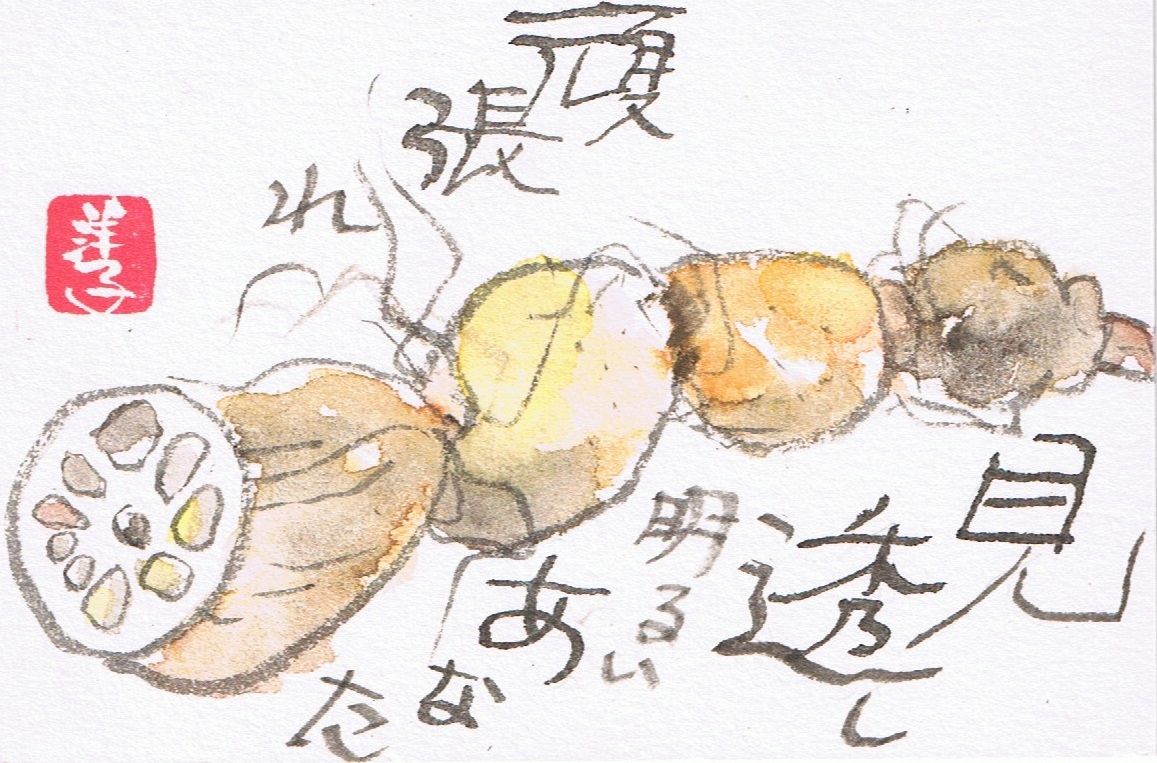 見透し
明るい
あなた
頑張れ